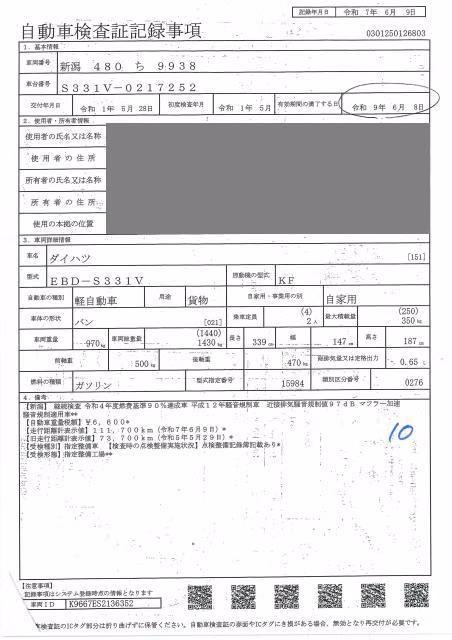 記録年月日 令和 7年 6月 9日
自動車検査証記録事項 0301250126803
1. 基本情報
車両番号 新潟 480 ち 9938
車台番号 S331V-0217252
交付年月日 令和 1年 5月 28日 初度検査年月 令和 1年 5月 有効期間の満了する日 令和 9年 6月 8日
2. 使用者・所有者情報
使用者の氏名又は名称
使用者の住所
所有者の氏名又は名称
所有者の住所
使用の本拠の位置
3. 車両詳細情報
車名 ダイハツ [151]
型式 EBD-S331V 原動機の型式 KF
自動車の種別 軽自動車 用途 貨物 自家用・事業用の別 自家用
車体の形状 バン [021] 乗車定員 (4) 2人 最大積載量 (250) 350kg
車両重量 970kg 車両総重量 (1440) 1430kg 長さ 339cm 幅 147cm 高さ 187cm
前軸重 500kg 後軸重 470kg 総排気量又は定格出力 0.65L
燃料の種類 ガソリン 型式指定番号 15984 類別区分番号 0276
4. 備考
【新潟】 継続検査 令和4年度燃費基準90%達成車 平成12年騒音規制車 近接排気騒音規制値97dB マフラー加速
騒音規制適用車**
【自動車重量税額】¥6,600*
【走行距離計表示値】111,700km(令和7年6月9日)*
【旧走行距離計表示値】73,700km(令和5年5月29日)*
【受検種別】指定整備車 【検査時の点検整備実施状況】点検整備記録簿記載あり*
【受検形態】指定整備工場**
10
【注意事項】
記録事項はシステム登録時点の情報となります
車両ID K9667ES2136352
検査証のICタグ部分は折り曲げずに保管ください。自動車検査証の券面やICタグにき損がある場合、無効となり再交付が必要です。